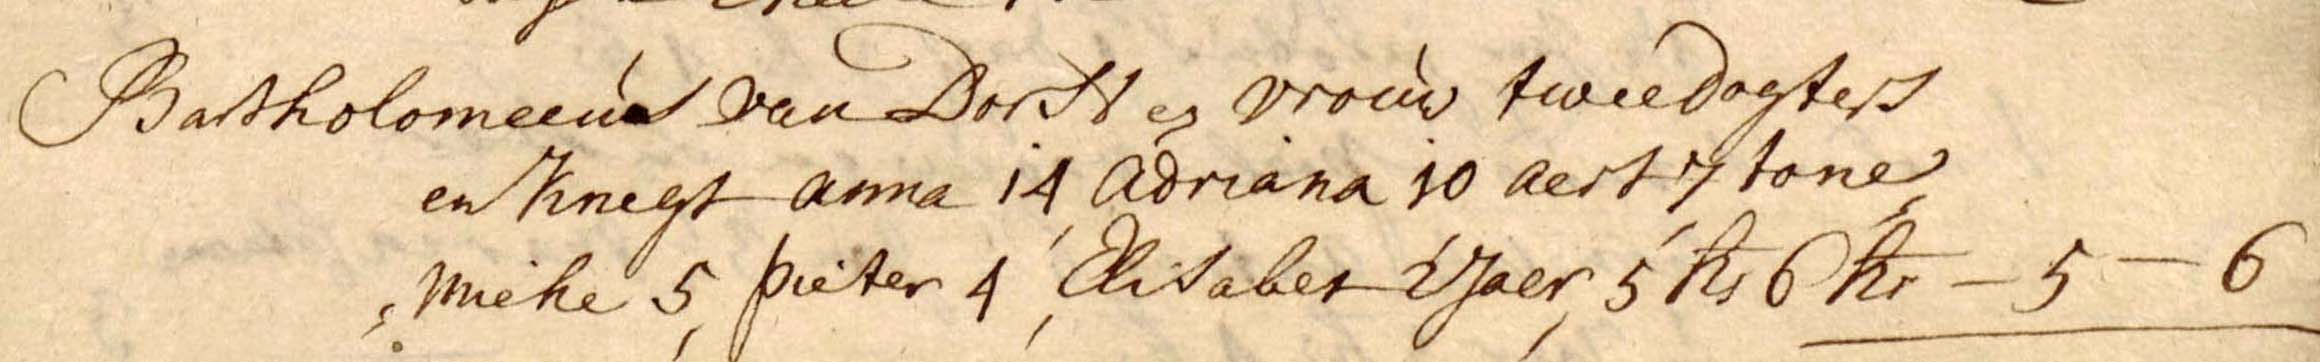 Bartholomeeus van Dorst en vrouw twee dogters
en knegt anna 14, adriana 10 aert 7, tone,
mieke 5, pieter 4, Elisabet 2 Jaer, 5 ks 6 kr – 5 – 6